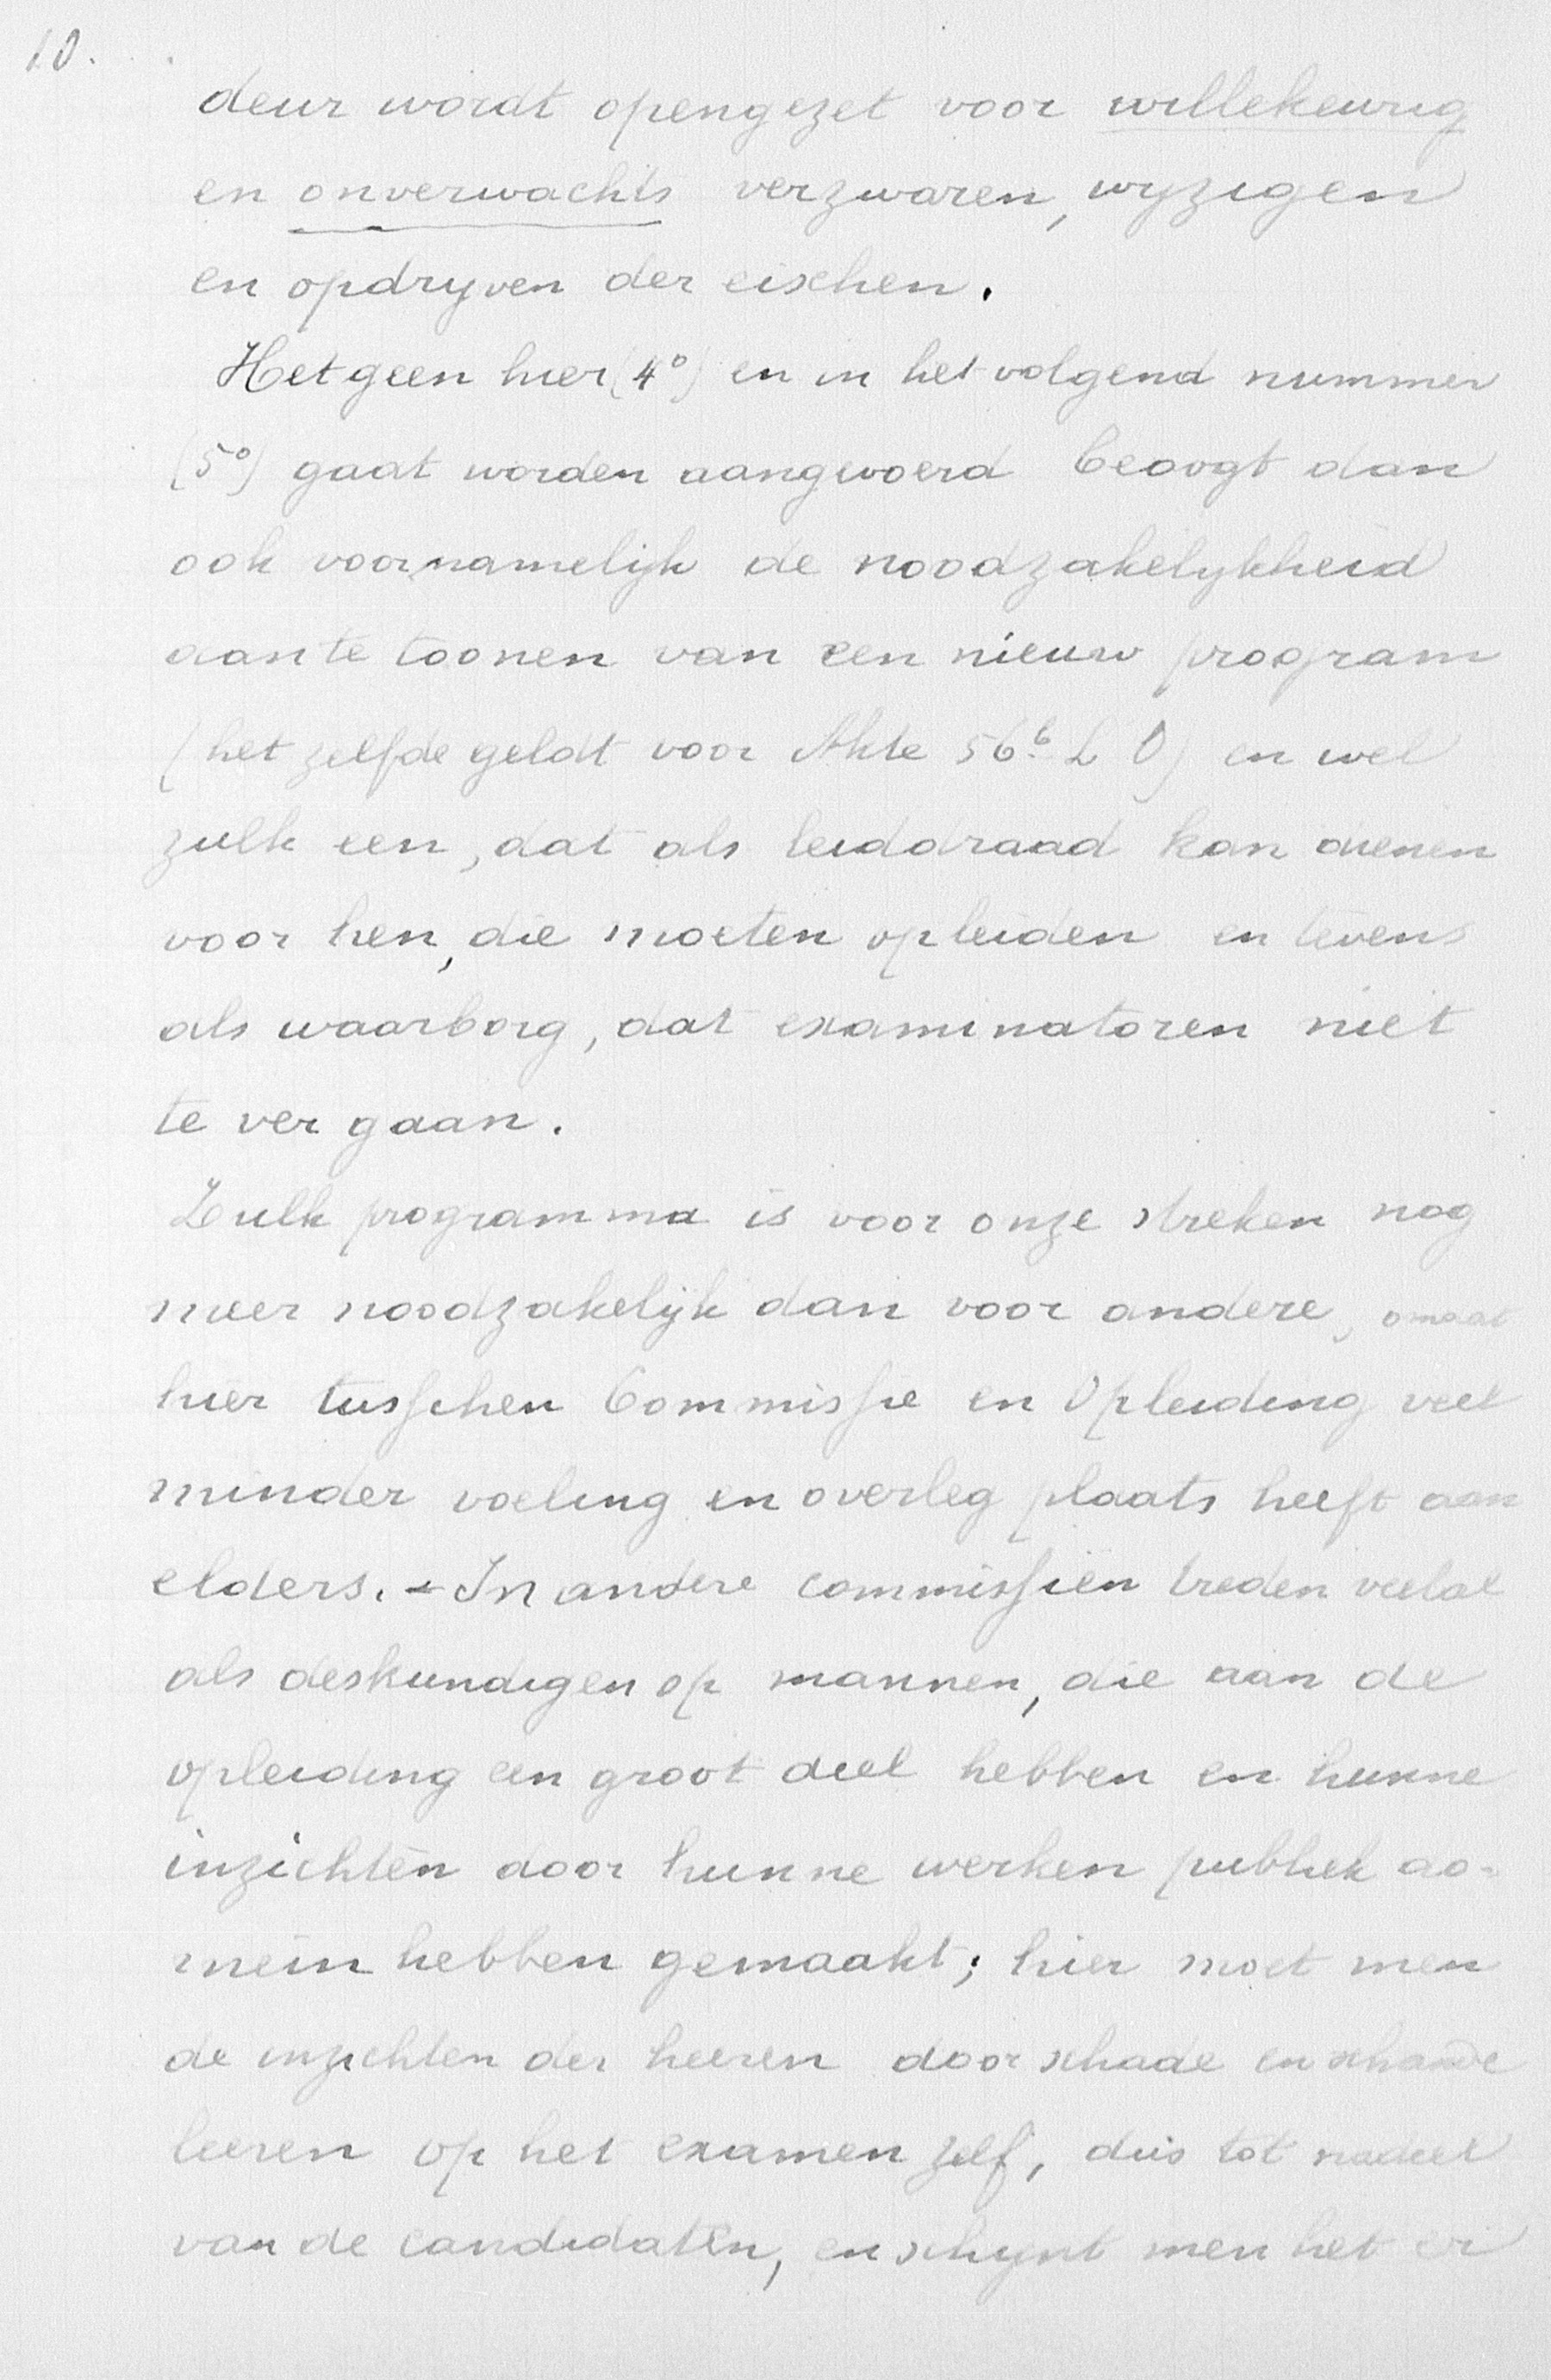 10.
deur wordt opengezet voor willekeurig
en onverwachts verzwaren, wyzigen
en opdryven der eischen.
Hetgeen hier (4°) en in het volgend nummer
(5°) gaat worden aangevoerd beoogt dan
ook voornamelijk de noodzakelykheid
aan te toonen van een nieuw program
(het zelfde geldt voor Akte 56b L O) en wel
zulk een, dat als leiddraad kan dienen
voor hen, die moeten opleiden en tevens
als waarborg, dat examinatoren niet
te ver gaan.
Zulk programma is voor onze streken nog
meer noodzakelijk dan voor andere, omdat
hier tusschen Commissie en Opleiding veel
minder voeling en overleg plaats heeft dan
elders. - In andere commissiën treden veelal
als deskundigen op mannen, die aan de
opleiding een groot deel hebben en hunne
inzichten door hunne werken publiek do-
mein hebben gemaakt; hier moet men
de inzichten der heeren door schade en schande
leeren op het examen zelf, dus tot nadeel
van de candidaten, en schynt men het er